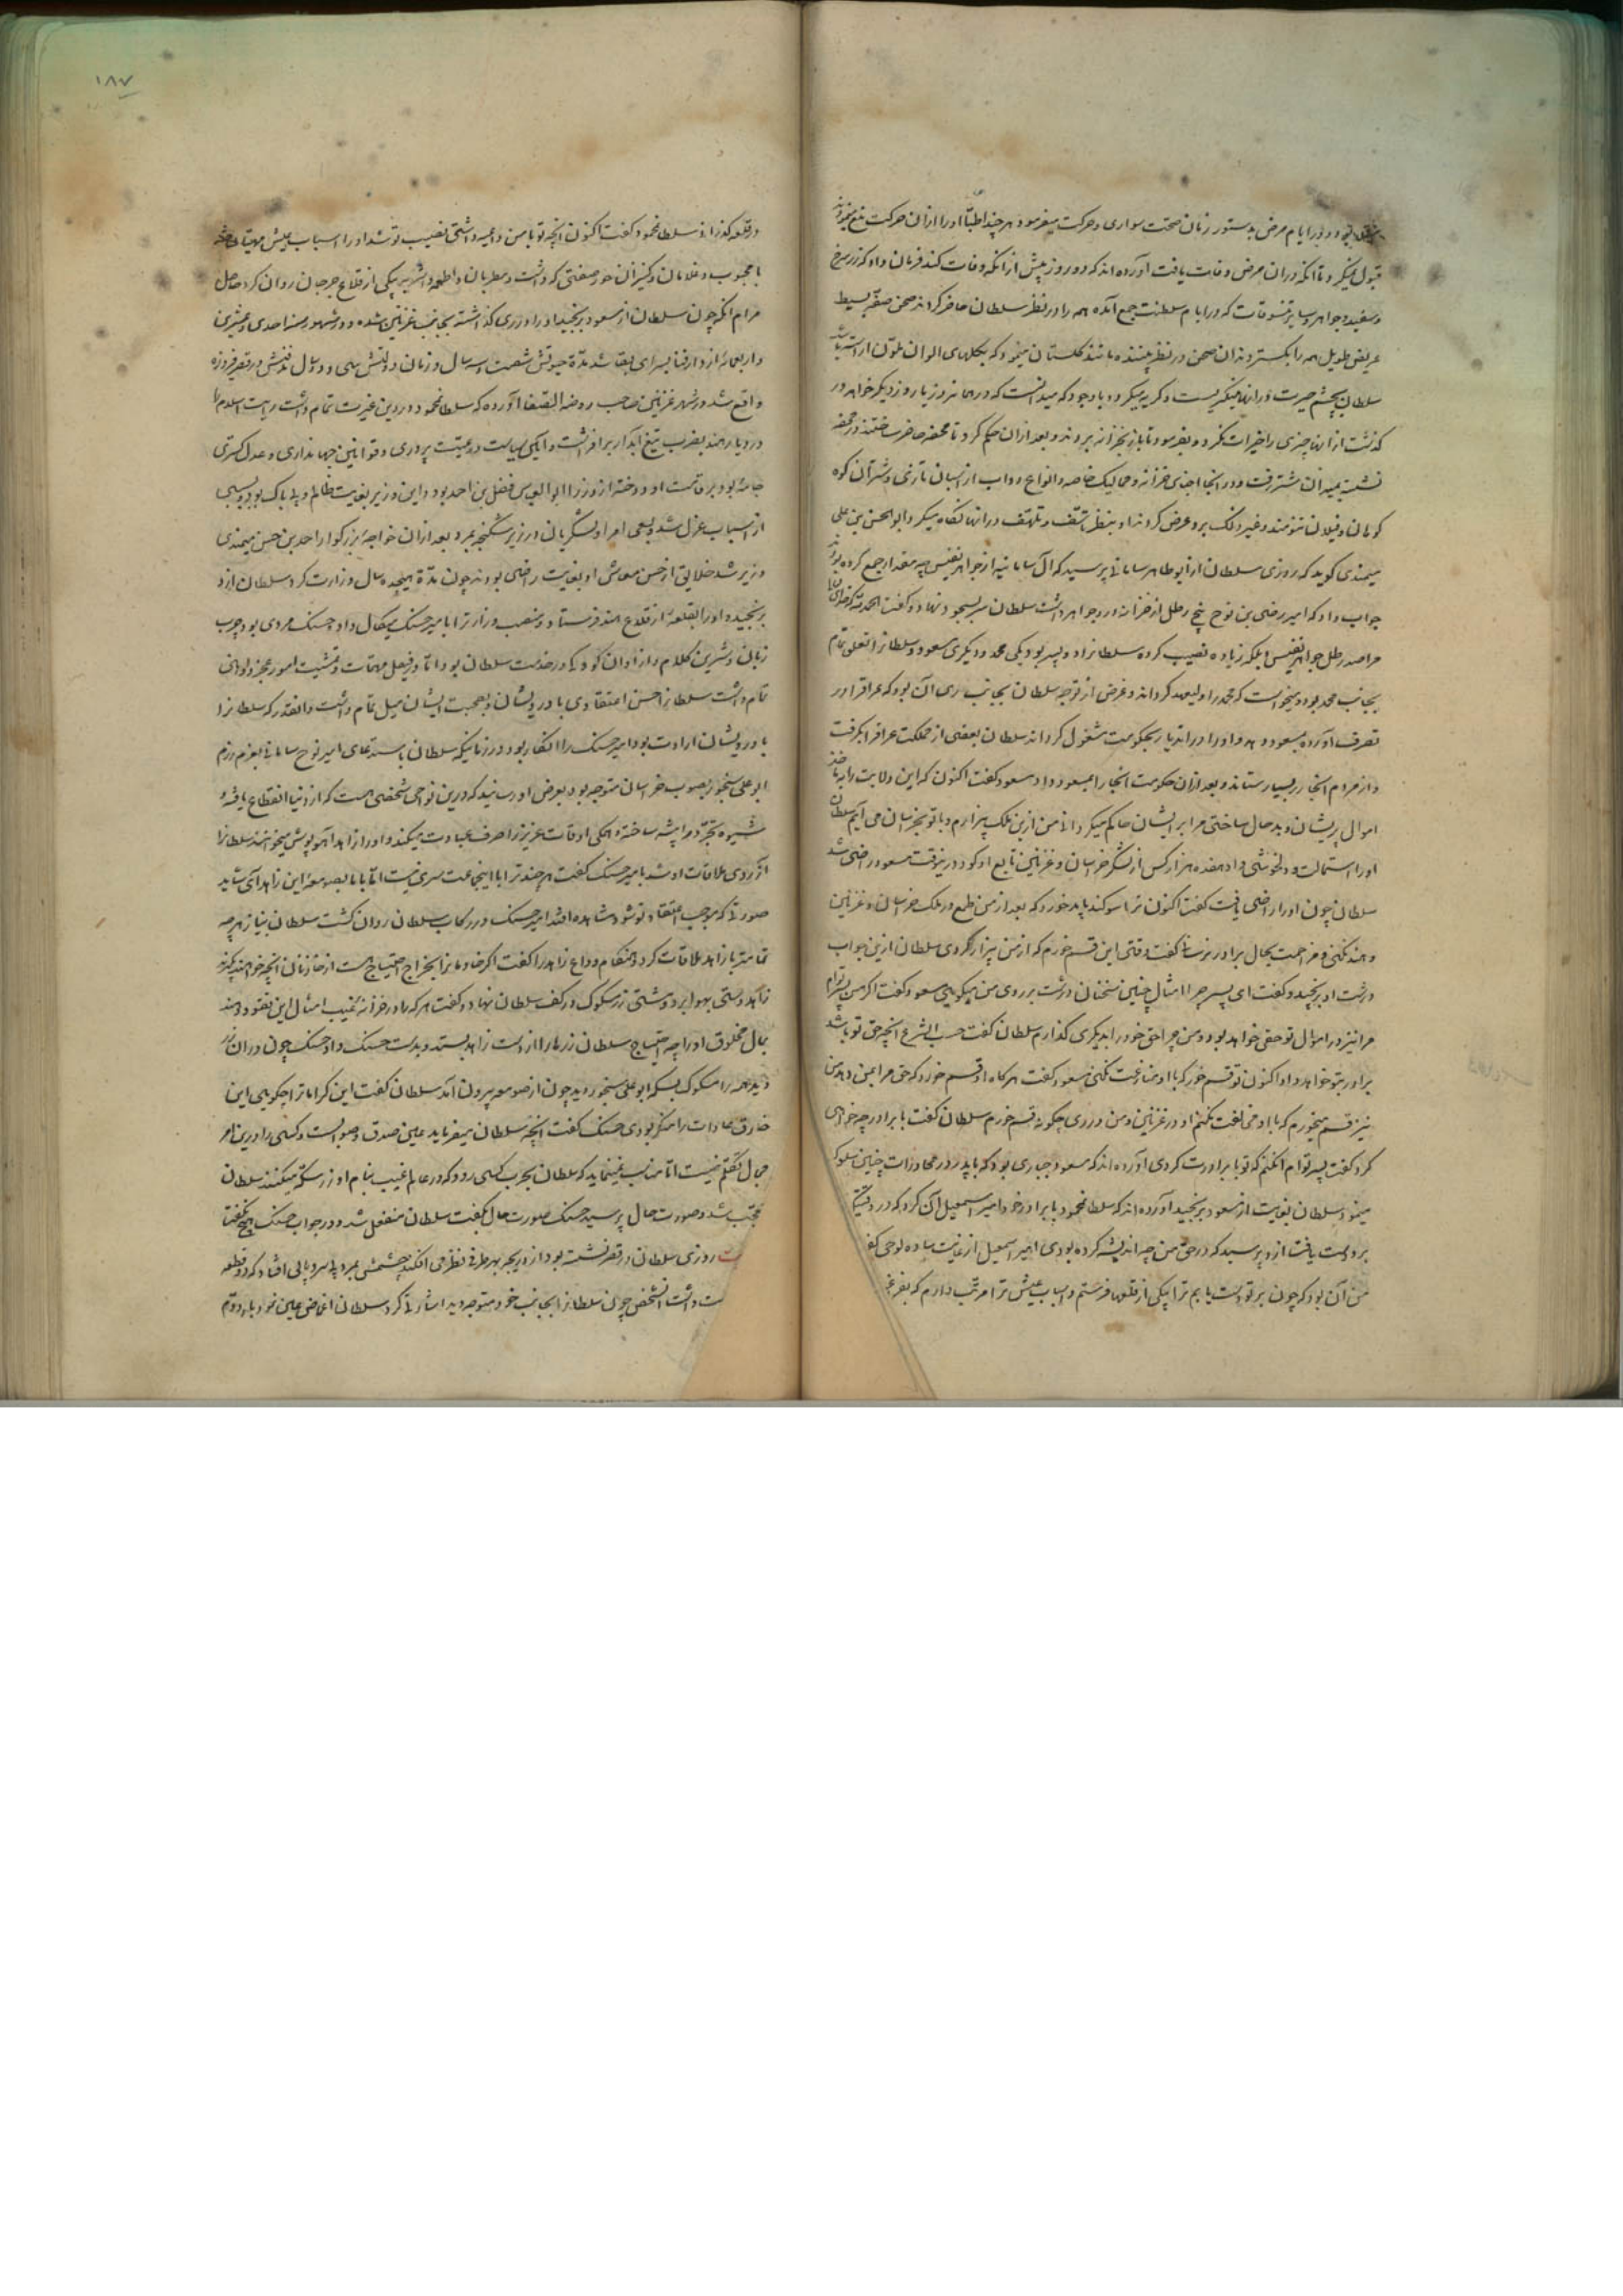 بود و در ایام مرض بدستور زمان صحت سواری و حرکت میفرمود هر چند اطبا او را ازان حرکت منع مینمودند
قبول نمیکرد تا آنکه دران مرض وفات یافت آورده اند که دو روز پیش از آنکه وفات کند فرمان داد که زر سرخ
و سفید و جواهر و سایر تنسوقات که در ایام سلطنت جمع آمده همه را در نظر سلطان حاضر کردند صحن صفه بسیط
عریض طویل همه را بگستردند ان صحن در نظر بیننده مانند گلستان مینمود که بگلهای الوان ملون آراسته باشد
سلطان بچشم حیرت در انها مینگریست و گریه میکرد و با وجود که میدانست که در همان روز یا روز دیگر خواهد در
گذشت از انها چیزی را خیرات نکرد و بفرمود تا باز بخزانه بردند و بعد ازان حکم کرد تا محفه حاضر ساختند در محفه
نشسته بمیدان شتر رفت و در انجا اجناس خزانه و ممالیک خاصه و انواع دواب از اسپان تازی و شتران کوه
کوهان و فیلان تنومند و غیر ذلک برو عرض کردند او بنظر تاسف و تلهف در انها نگاه میکرد ابوالحسن بن علی
میمندی گوید که روزی سلطان از ابو طاهر سامانی پرسید که آل سامانیه از جواهر نفیس چه مقدار جمع کرده بودند
جواب داد که امیر رضی بن نوح پنج رطل از خزانه در جواهر داشت سلطان سر بسجود نهاد و گفت الحمد لله که خدای
مرا صد رطل جواهر نفیس بلکه زیاده نصیب کرده سلطانرا دو پسر بود یکی محمد و دیگری مسعود و سلطانرا تعلق تمام
بجانب محمد بود و میخواست که محمد را ولیعهد گرداند و غرض از توجه سلطان بجانب ری آن بود که عراق را در
تصرف آورده بمسعود دهد و او را در اندیار بحکومت مشغول گرداند سلطان بعضی از مملکت عراق را بگرفت
و از مردم انجا زر بسیار ستاند و بعد ازان حکومت انجا را بمسعود داد مسعود گفت اکنون که این ولایت را به اخذ
اموال پریشان و بد حال ساختی مرا بر ایشان حاکم میگردانی من ازین ملک بیزارم و با تو بخراسان می آیم سلطان
او را استمالت و دلخوشی داد هفده هزار کس از لشکر خراسان و غزنین تابع او کرد درینوقت مسعود راضی شد
سلطان چون او را راضی یافت گفت اکنون ترا سوگند باید خورد که بعد از من طمع در ملک خراسان و غزنین
و هند نکنی و مزاحمت بحال برادر نرسانی گفت وقتی این قسم خورم که از من بیزار گردی سلطان ازین جواب
درشت او برنجید و گفت ای پسر چرا امثال چنین سخنان درشت بر روی من میگویی مسعود گفت اگر من پسر توام
مرا نیز در اموال تو حقی خواهد بود و من چرا حق خود را بدیگری گذارم سلطان گفت حسب الشرع آنچه حق تو باشد
برادر بتو خواهد داد اکنون تو قسم خور که با او منازعت نکنی مسعود گفت هر گاه او قسم خورد که حق مرا بمن دهد من
نیز قسم میخورم که با او مخالفت نکنم او در غزنین و من در ری چگونه قسم خورم سلطان گفت با برادر چه خواهی
کرد گفت پسر توام آن کنم که تو با برادرت کردی آورده اند که مسعود جباری بود که با پدر در محاورات چنین سلوک
مینمود سلطان بغایت از مسعود برنجید آورده اند که سلطان محمود با برادر خود امیر اسمعیل آن کرد که در وقتیکه
برو دست یافت ازو پرسید که در حق من چه اندیشه کرده بودی امیر اسمعیل از غایت ساده لوحی گفت
من آن بود که چون بر تو دست یابم ترا بیکی از قلعها فرستم و اسباب عیش ترا مرتب دارم که بفراغت
۱۸۷
در قلعه گذرانی سلطان محمود گفت اکنون آنچه تو با من داعیه داشتی نصیب تو شد او را اسباب عیش مهیا ساخته
با محبوب و غلامان و کنیزان حور صفتی که داشت و مطربان و اطعمه و اشربه بیکی از قلاع جرجان روان کرد حاصل
مرام آنکه چون سلطان از مسعود برنجید او را در ری گذاشته بجانب غزنین شده و در شهور سنه احدی و عشرین
و اربعمائه از دار فنا بسرای بقا شد مدة حیوتش شصت و سه سال و زمان دولتش سی و دو سال مدفنش در قصر فیروزه
واقع شد در شهر غزنین صاحب روضة الصفا آورده که سلطان محمود در دین غیرت تمام داشت رایت اسلام را
در دیار هند بضرب تیغ آبدار بر افراشت و آیین سیاست و رعیت پروری و قوانین جهانداری و عدل گستری
جامه بود بر قامت او دوخته از وزرا ابوالعباس فضل بن احمد بود و این وزیر بغایت ظالم و بی باک بود بسببی
از اسباب عزل شد و بسعی امرا و لشکریان در زیر شکنجه بمرد بعد ازان خواجه بزرگوار احمد بن حسن میمندی
وزیر شد خلایق از حسن معاش او بغایت راضی بودند چون مدة هیجده سال وزارت کرد سلطان ازو
برنجیده او را بقلعه از قلاع هند فرستاد و منصب وزارت را بامیر حسنک میکال داد حسنک مردی بود چرب
زبان و شیرین کلام و از اوان کودکی در خدمت سلطان بود اما در فیصل مهمات و تمشیت امور عجز و نادانی
تمام داشت سلطانرا حسن اعتقادی با درویشان و بصحبت ایشان میل تمام داشت و آنقدر که سلطانرا
با درویشان ارادت بود امیر حسنک را انکار بود و در زمانیکه سلطان باستدعای امیر نوح سامانی بعزم رزم
ابو علی سنجور بصوب خراسان متوجه بود بعرض او رسانید که درین نواحی شخصی هست که از دنیا انقطاع یافته و
شیوه تجرد را پیشه ساخته و همگی اوقات عزیز را صرف عبادت میکند و او را زاهد آهوپوش میخوانند سلطانرا
آرزوی ملاقات او شد بامیر حسنک گفت هر چند ترا با اینجماعت سری نیست اما با ما بصومعه این زاهد آی شاید
صورتی که موجب اعتقاد تو شود مشاهده افتد امیر حسنک در رکاب سلطان روان گشت سلطان بنیاز هر چه
تمامتر با زاهد ملاقات کرد و هنگام وداع زاهد را گفت اگر خادمانرا بخراج احتیاج هست از خازنان آنچه خواهند بگیرند
زاهد دستی بهوا برد و مشتی زر مسکوک در کف سلطان نهاد و گفت هر که را از خزانه غیب امثال این نقود دهند
بمال مخلوق او را چه احتیاج سلطان زرها را از دست زاهد بستد و بدست حسنک داد حسنک چون دران زر
دید همه را مسکوک بسکه ابو علی سنجور دید چون از صومعه بیرون آمد سلطان گفت این کرامات را چگویی این
خارق عادات را منکر بودی حسنک گفت آنچه سلطان میفرماید عین صدق و صوابست و کسی را درین امر
مجال تکلم نیست اما مناسب نمینماید که سلطان بحرب کسی رود که در عالم غیب بنام او زر سکه میکنند سلطان
متعجب شد و صورت حال پرسید حسنک صورت حال بگفت سلطان منفعل شد و در جواب حسنک هیچ نگفت
روزی سلطان در قصر نشسته بود از دریچه بهر طرفی نظر می افکند چشمش بمرد بی سر و پایی افتاد که دو قطعه
داشت آنشخص چون سلطانرا بجانب خود متوجه دید اشارتی کرد سلطان اغماض عین نمود بار دوم